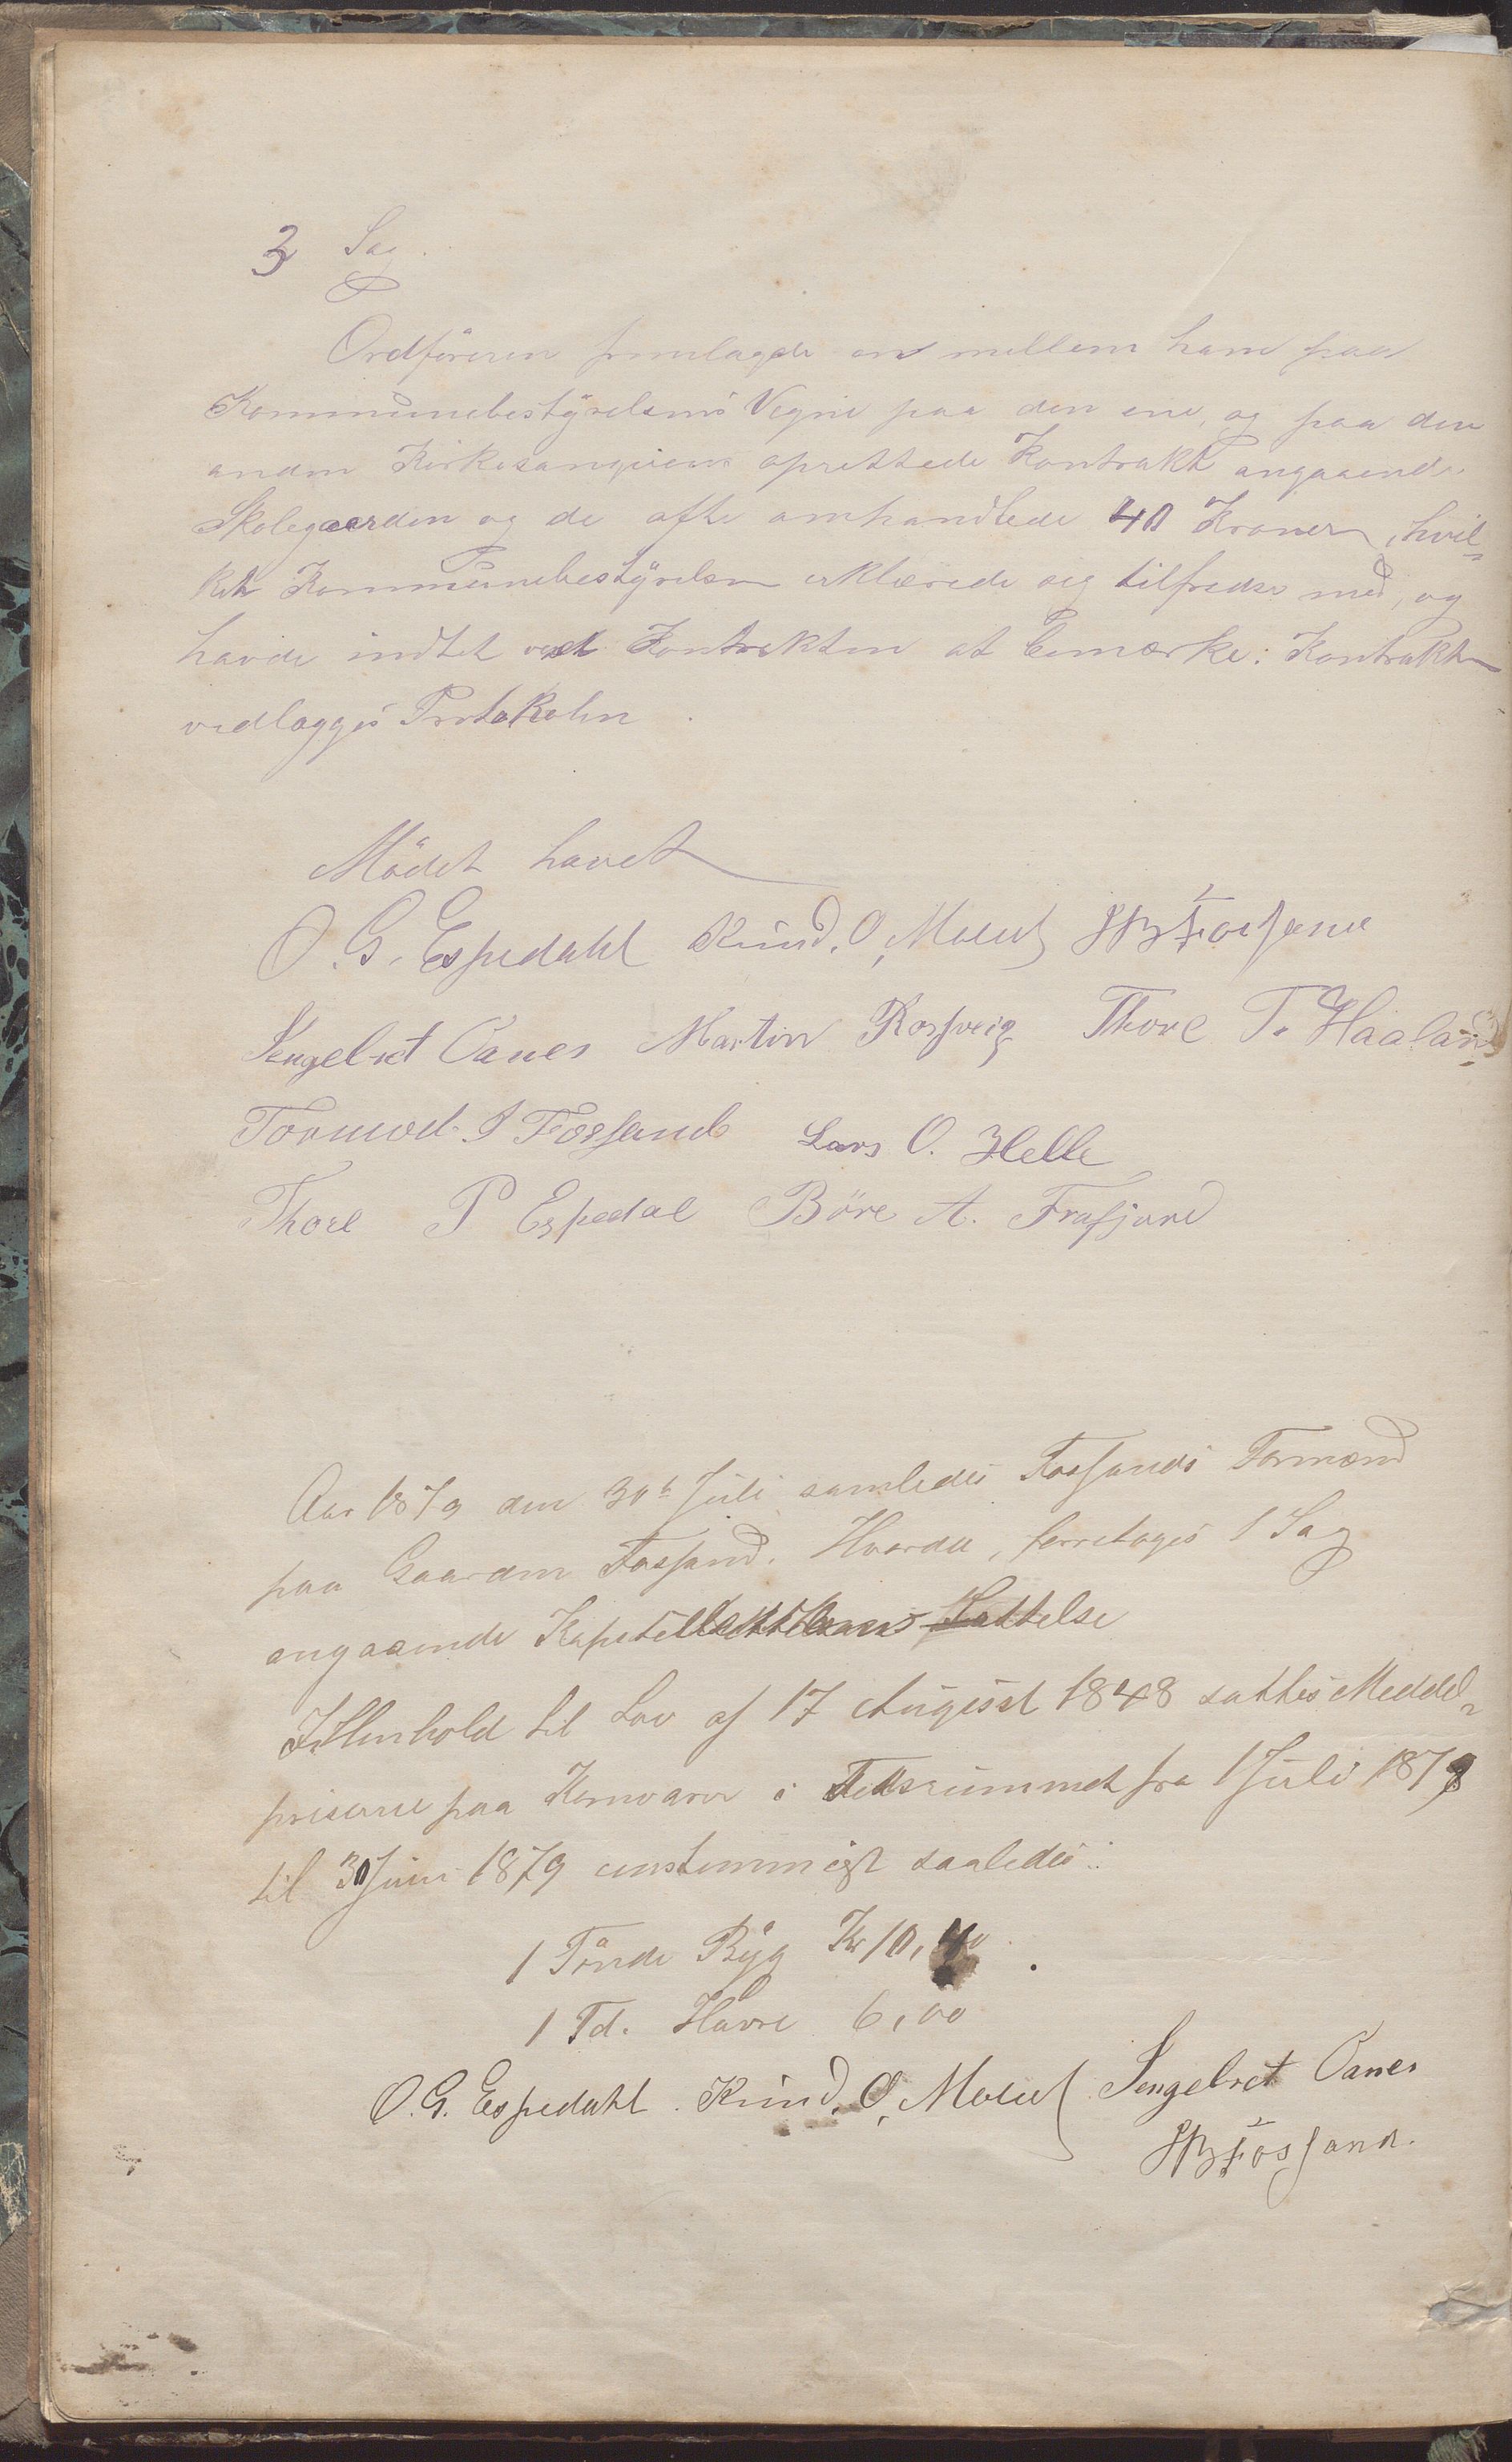 3 Sag.
Ordföreren fremlagde en mellem ham paa
Kommunebestÿrelsens Vegne paa den ene, og paa den
anden Kirkesangeren oprettede Kontrakt angaaende
Skolegaarden og de ofte omhandlede 40 Kroner, hvil-
ket Kommunebestÿrelsen erklærede sig tilfreds med, og
havde indtet ved Kontrakten at bemærke: Kontrakten
vedlægges Protokolen.
Mödet hævet
O. G. Espedahl Knud. O, Moluf Fossand
Sengelret Oanes Martin Rossveig Thore T. Haaland
Tormod Fossand Lars O. Helle
Thore P Espedal Böre A. Frafjord
Aar 1879 den 30te Juli samledes Fossands Formænd
paa Gaarden Fossand. Hvorda, forretoges 1 Sag
angaaende Kapiteltakstens Sættelse
I Henhold til Lov af 17 August 1848 sattes Meddel-
priserne paa Kornvarer i Tidsrummet fra 1 Juli 1878
til 30 Juni 1879 enstemmigt saaledes:
1 Tönde Bÿg Kr 10,40
1 Td. Havre 6,00
O. G. Espedahl. Knud. O, Moluf Sengelret Oanes
Fossand.